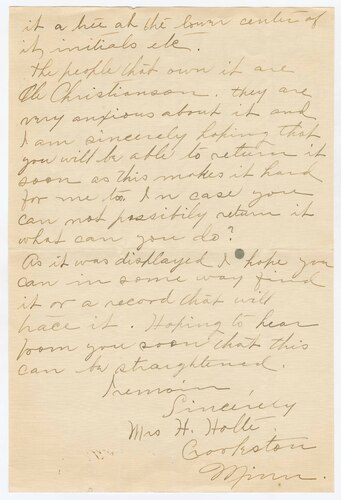 it a tree at the lower center of
it, initials etc.
The people that own it are
Ole Christianson. They are
very anxious about it and
I am sincerely hoping that
you will be able to return it
soon as this makes it hard
for me too. In case you
can not possibily return it
what can you do?
As it was displayed I hope you
can in some way find
it or a record that will
trace it. Hoping to hear
from you soon that this
can be straightened.
I remain,
Sincerely
Mrs H. Holte.
Crookston
Minn.